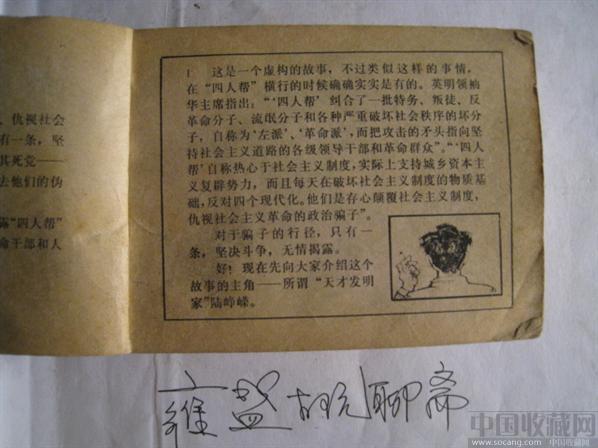 仇视社会
有一条，坚
其死党——
去他们的伪
露“四人帮”
命干部和人
1 这是一个虚构的故事，不过类似这样的事情，
在“四人帮”横行的时候确确实实是有的。英明领袖
华主席指出：“‘四人帮’纠合了一批特务、叛徒、反
革命分子、流氓分子和各种严重破坏社会秩序的坏分
子，自称为‘左派’、‘革命派’，而把攻击的矛头指向坚
持社会主义道路的各级领导干部和革命群众”。“‘四人
帮’自称热心于社会主义制度，实际上支持城乡资本主
义复辟势力，而且每天在破坏社会主义制度的物质基
础，反对四个现代化。他们是存心颠覆社会主义制度，
仇视社会主义革命的政治骗子”。
对于骗子的行径，只有一
条，坚决斗争，无情揭露。
好！现在先向大家介绍这个
故事的主角——所谓“天才发明
家”陆峥嵘。
聊斋
中国收藏网
www.socang.com